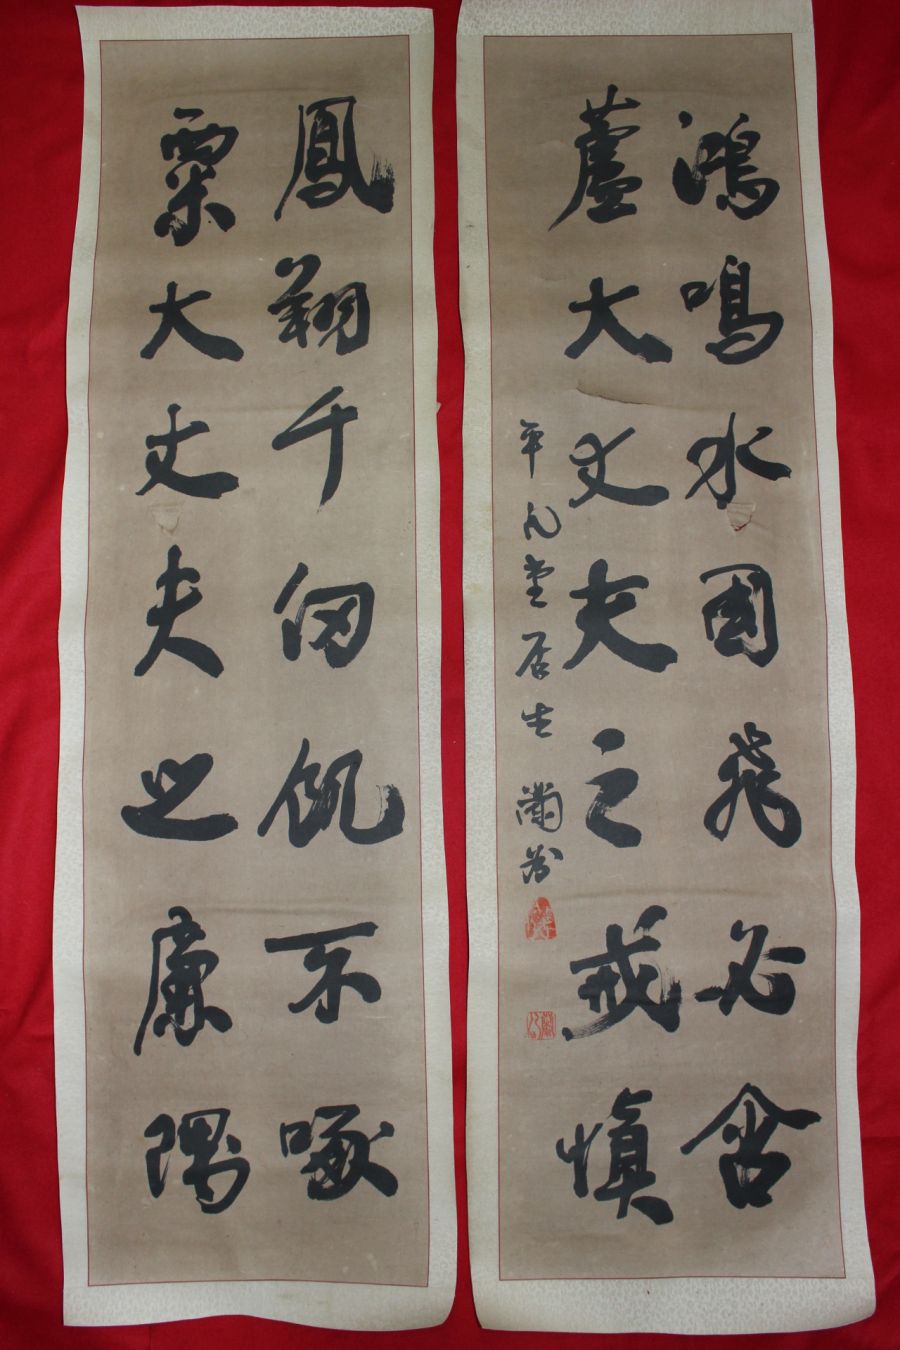 鴻鳴水國飛必含
蘆大丈夫之戒慎
平凡堂居士蘭
鳳翔千仞飢不啄
粟大丈夫之廉隅